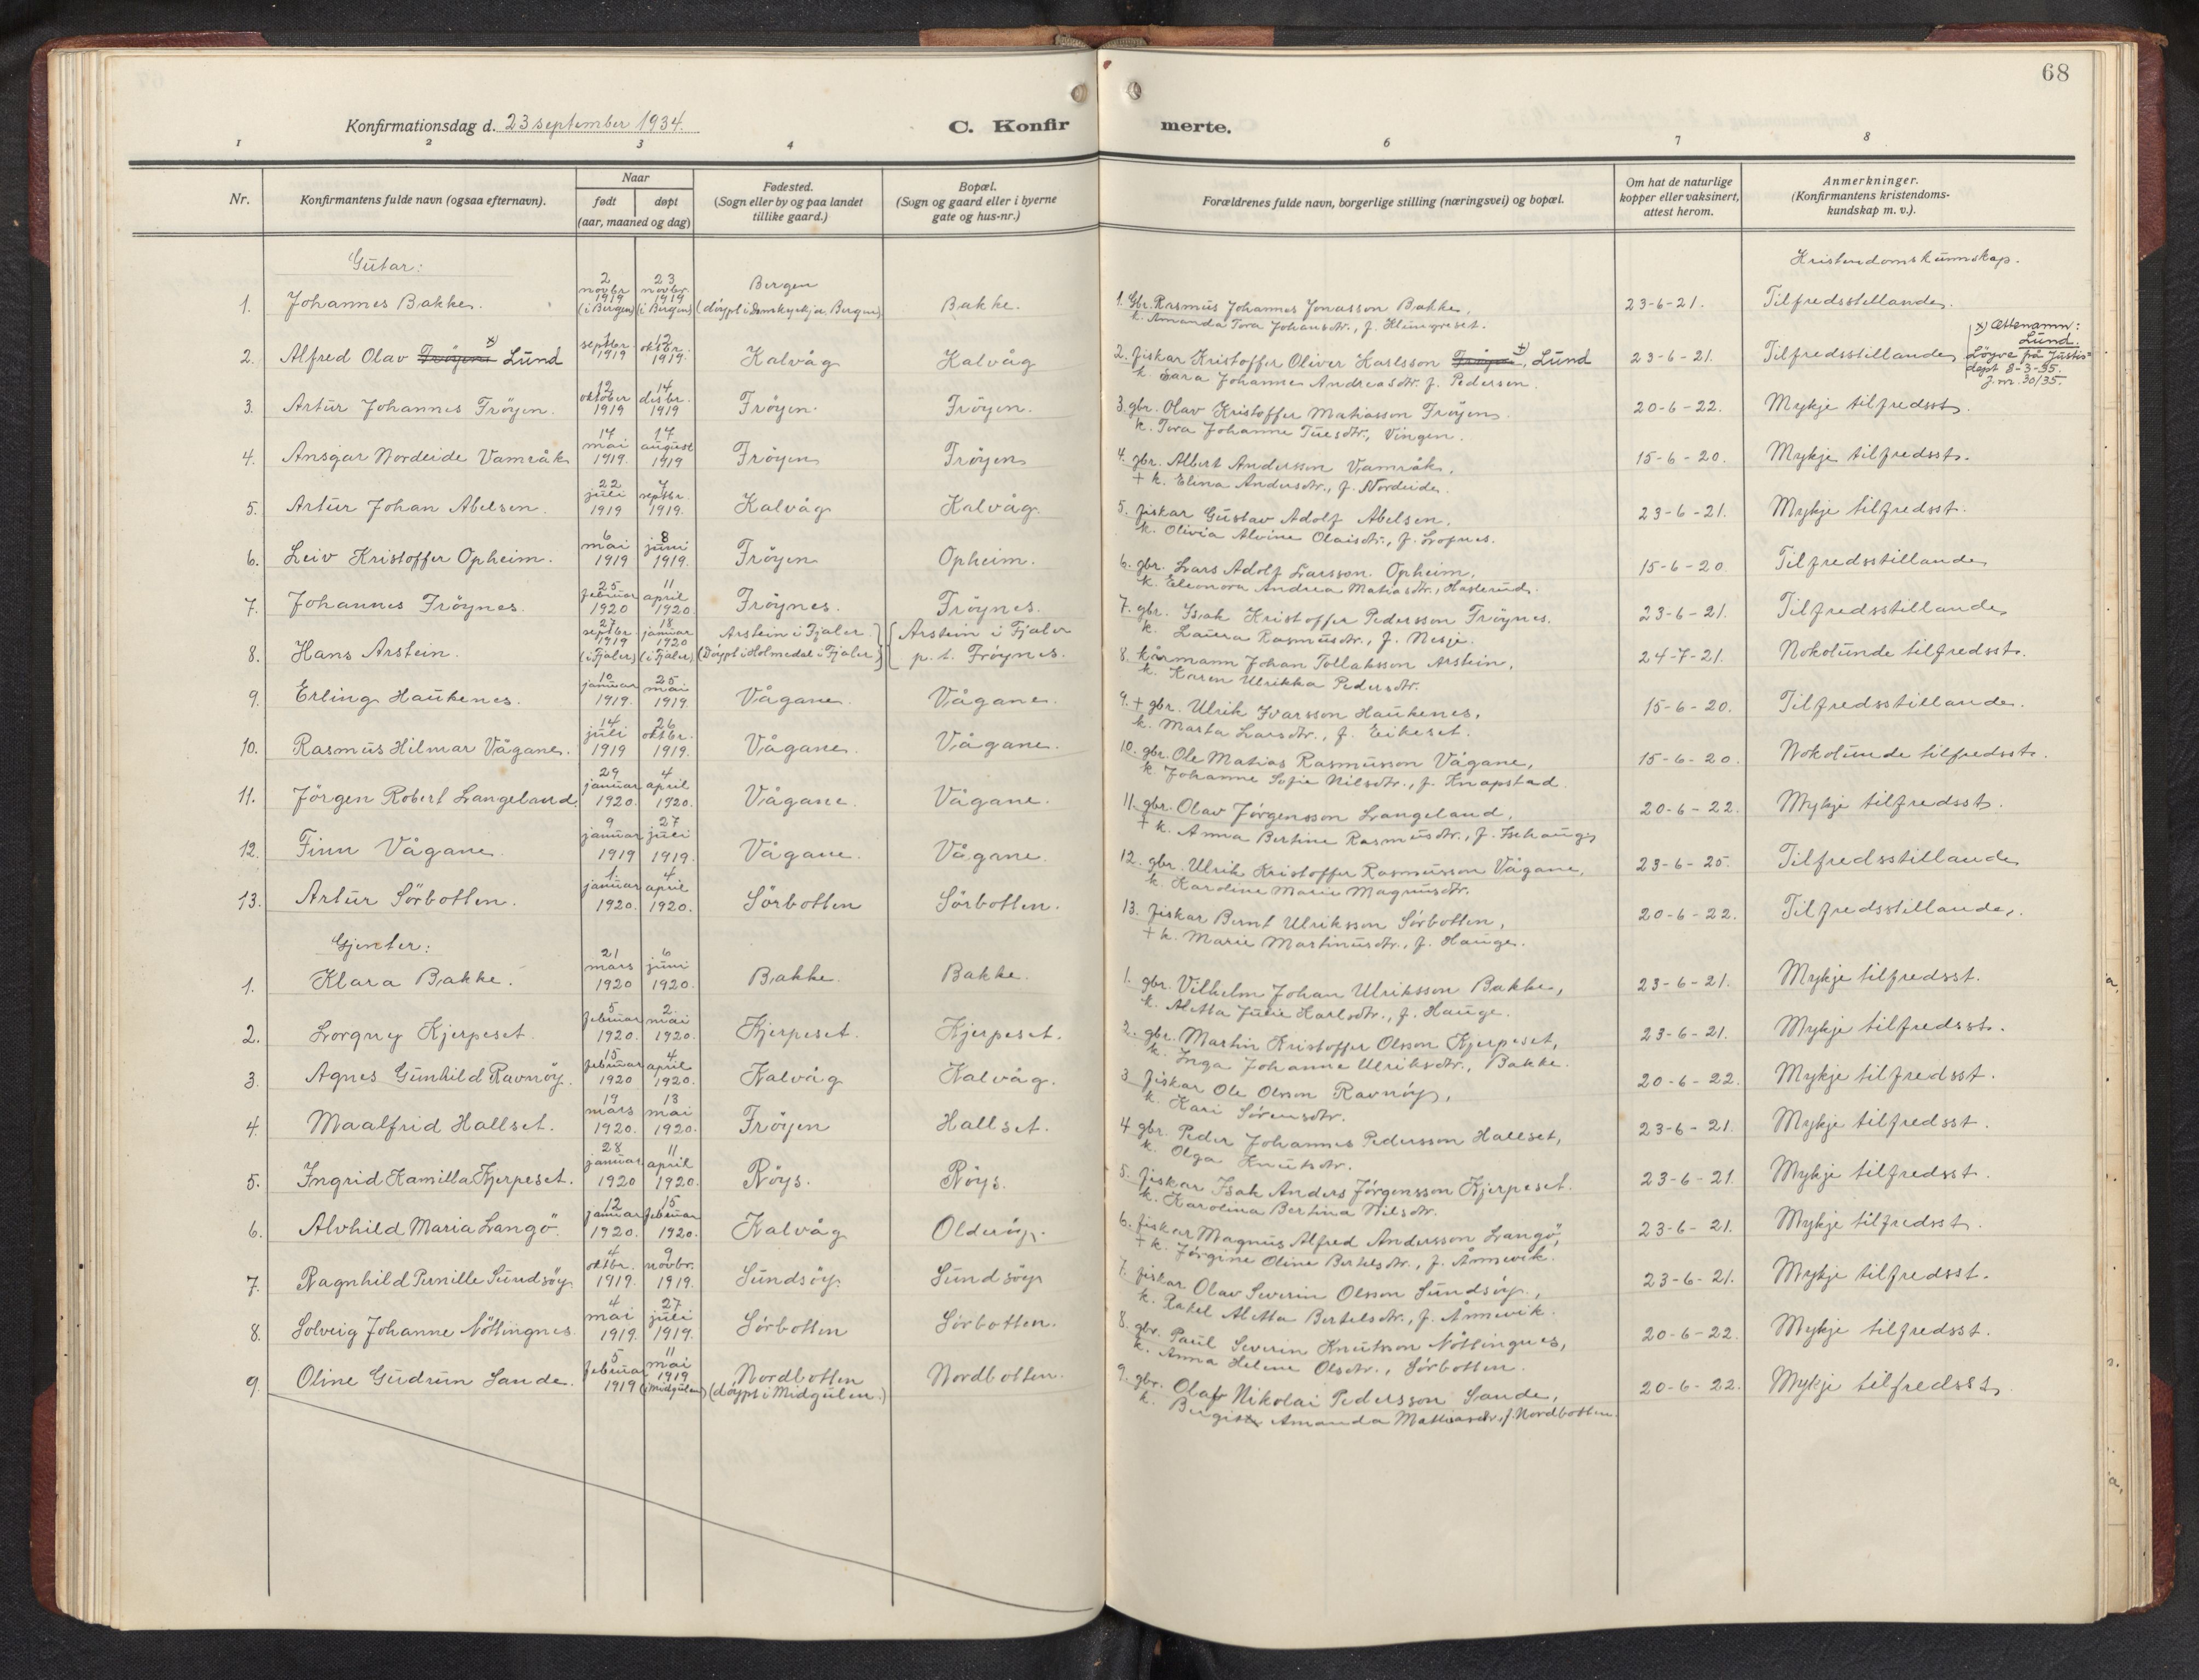 68
Konfirmationsdag d. 23 september 1934.
C. Konfirmerte.
1 2 3 4 6 7 8
Nr. Konfirmantens fulde navn (ogsaa efternavn). Naar født døpt (aar, maaned og dag) Fødested. (Sogn eller by og paa landet tillike gaard.) Bopæl. (Sogn og gaard eller i byerne gate og hus-nr.) Forældrenes fulde navn, borgerlige stilling (næringsvei) og bopæl. Om hat de naturlige kopper eller vaksinert, attest herom. Anmerkninger. (Konfirmantens kristendomskundskap m. v.).
Gutar: Kristendomskunnskap.
1. Johannes Bakke. 2 novbr 1919 (i Bergen) 23 novbr. 1919 (i Bergen) Bergen (döypt i Domkyrkja, Bergen) Bakke. 1. Gbr. Rasmus Johannes Jonasson Bakke, 23-6-21. Tilfredsstillande.
k. Amanda Tora Johansdtr., f. Klungreset.
2. Alfred Olav Fröyen x) Lund septbr. 1919 12 oktbr. 1919. Kalvåg Kalvåg 2. fiskar Kristoffer Oliver Karlsson Fröyen x), Lund 23-6-21. Tilfredsstillande, x) Ættenamn: Lund.
k. Sara Johanne Andreasdtr. f. Pedersen. Löyve på Justisdept 8-3-35. J.nr. 30/35.
3. Artur Johannes Fröyen. 12 oktober 1919 14 desbr. 1919 Fröyen. Fröyen. 3. gbr. Olav Kristoffer Matiasson Fröyen, 20-6-22. Mykje tilfredsst.
k. Tora Johanne Tuesdtr., Vingen.
4. Ansgar Nordeide Vamråk 14 mai 1919. 17 august 1919 Fröyen Fröyen 4. gbr. Albert Andersson Vamråk, 15-6-20. Mykje tilfredsst.
+ k. Elina Andersdtr., f. Nordeide.
5. Artur Johan Abelsen. 22 juli 1919 7 septbr. 1919. Kalvåg Kalvåg. 5. fiskar Gustav Adolf Abelsen, 23-6-21. Mykje tilfredsst.
k. Olivia Alvine Olaisdtr., f.
6. Leiv Kristoffer Opheim. 6 mai 1919 8 juni 1919. Fröyen Opheim. 6. gbr. Lars Adolf Larsson Opheim, 15-6-20 Tilfredsstillande
k. Eleonora Andrea Matiasdtr.,
7. Johannes Fröynes. 25 februar 1920 11 april 1920 Fröynes. Fröynes. 7. gbr. Isak Kristoffer Pedersson Fröynes. 23-6-21. Tilfredsstillande,
k. Laura Rasmusdtr., f. Nesje.
8. Hans Arstein. 27 septbr. 1919 (i Fjaler) 18 januar 1920 (i Fjaler) Arstein i Fjaler (Döypt i Holmedal i Fjaler) Arstein i Fjaler p. t. Fröynes. 8. kårmann Johan Tollaksson Arstein, 24-7-21. Nokolunde tilfredsst.
k. Karen Ulrikka Pedersdtr.
9. Erling Haukenes. 10 januar 1919. 25 mai 1919. Vågane. Vågane. 9. + gbr. Ulrik Ivarsson Haukenes, 15-6-20. Tilfredsstillande.
k. Marta Larsdtr., f. Eikeset.
10. Rasmus Hilmar Vågane. 14 juli 1919 26 oktbr. 1919. Vågane. Vågane. 10. gbr. Ole Matias Rasmusson Vågane, 15-6-20. Nokolunde tilfredsst.
k. Johanne Sofie Nilsdtr., f. Knapstad.
11. Jörgen Robert Langeland. 29 januar 1920. 4 april 1920. Vågane. Vågane. 11. gbr. Olav Jörgensson Langeland, 20-6-22. Mykje tilfredsst.
+ k. Anna Bertine Rasmusdtr., f. Isehaug,
12. Finn Vågane 9 januar 1919 27 juli 1919. Vågane. Vågane. 12. gbr. Ulrik Kristoffer Rasmusson Vågane, 23-6-25. Tilfredsstillande
k. Karoline Marie Magnusdtr.
13. Artur Sörbotten. 1. januar 1920. 4 april 1920. Sörbotten Sörbotten. 13. fiskar Bernt Ulriksson Sörbotten, 20-6-22. Tilfredsstillande,.
+ k. Marie Martinusdtr., f. Hauge.
Gjenter:
1. Klara Bakke. 21 mars 1920 6 juni 1920. Bakke. Bakke. 1. gbr. Vilhelm Johan Ulriksson Bakke, 23-6-21. Mykje tilfredsst.
k. Aletta Julie Karlsdtr., f. Hauge.
2. Lorgny Kjerpeset. 5 februar 1920. 2 mai 1920. Kjerpeset. Kjerpeset. 2. gbr. Martin Kristoffer Olsson Kjerpeset, 23-6-21. Mykje tilfredsst.
k. Inga Johanne Ulriksdtr., Bakke.
3. Agnes Gunhild Ravnöy. 15 februar 1920 4 april 1920. Kalvåg Kalvåg. 3 fiskar Ole Olsson Ravnöy, 20-6-22. Mykje tilfredsst.
k. Kari Sörensdtr.
4. Maalfrid Hallset. 19 mars 1920. 13 mai 1920. Fröyen Hallset. 4 gbr. Peder Johannes Pedersson Hallset, 23-6-21. Mykje tilfredsst.
k. Olga Knutsdtr.
5. Ingrid Kamilla Kjerpeset. 28 januar 1920 11 april 1920. Röys. Röys. 5. fiskar Isak Anders Jörgensson Kjerpeset. 23-6-21. Mykje tilfredsst.
k. Karolina Bertina Nilsdtr.
6. Alvhild Maria Langö. 12 januar 1920. 15 februar 1920. Kalvåg Olderöy. 6. fiskar Magnus Alfred Andersson Langö, 23-6-21. Mykje tilfredsst.
+ k. Jörgine Oline Bertelsdtr., f. Ånnevik.
7. Ragnhild Pernille Sundsöy. 4 oktbr. 1919. 9 novbr. 1919. Sundsöy. Sundsöy 7. fiskar Olav Severin Olsson Sundsöy, 23-6-21. Mykje tilfredsst.
k. Rakel Aletta Bertelsdtr., f. Ånnevik.
8. Solveig Johanne Nöttingnes. 4 mai 1919. 27 juli 1919. Sörbotten Sörbotten. 8. gbr. Paul Severin Knutsson Nöttingnes, 20-6-22. Mykje tilfredsst.
k. Anna Helene Olsdtr., Sörbotten.
9. Oline Gudrun Sande. 5 februar 1919 11 mai 1919 (i Midgulen) Nordbotten (döypt i Midgulen.) Nordbotten. 9. gbr. Olav Nikolai Pedersson Sande, 20-6-22. Mykje tilfredsst.
k. Amanda Mathiasdtr., f. Nordbotten.